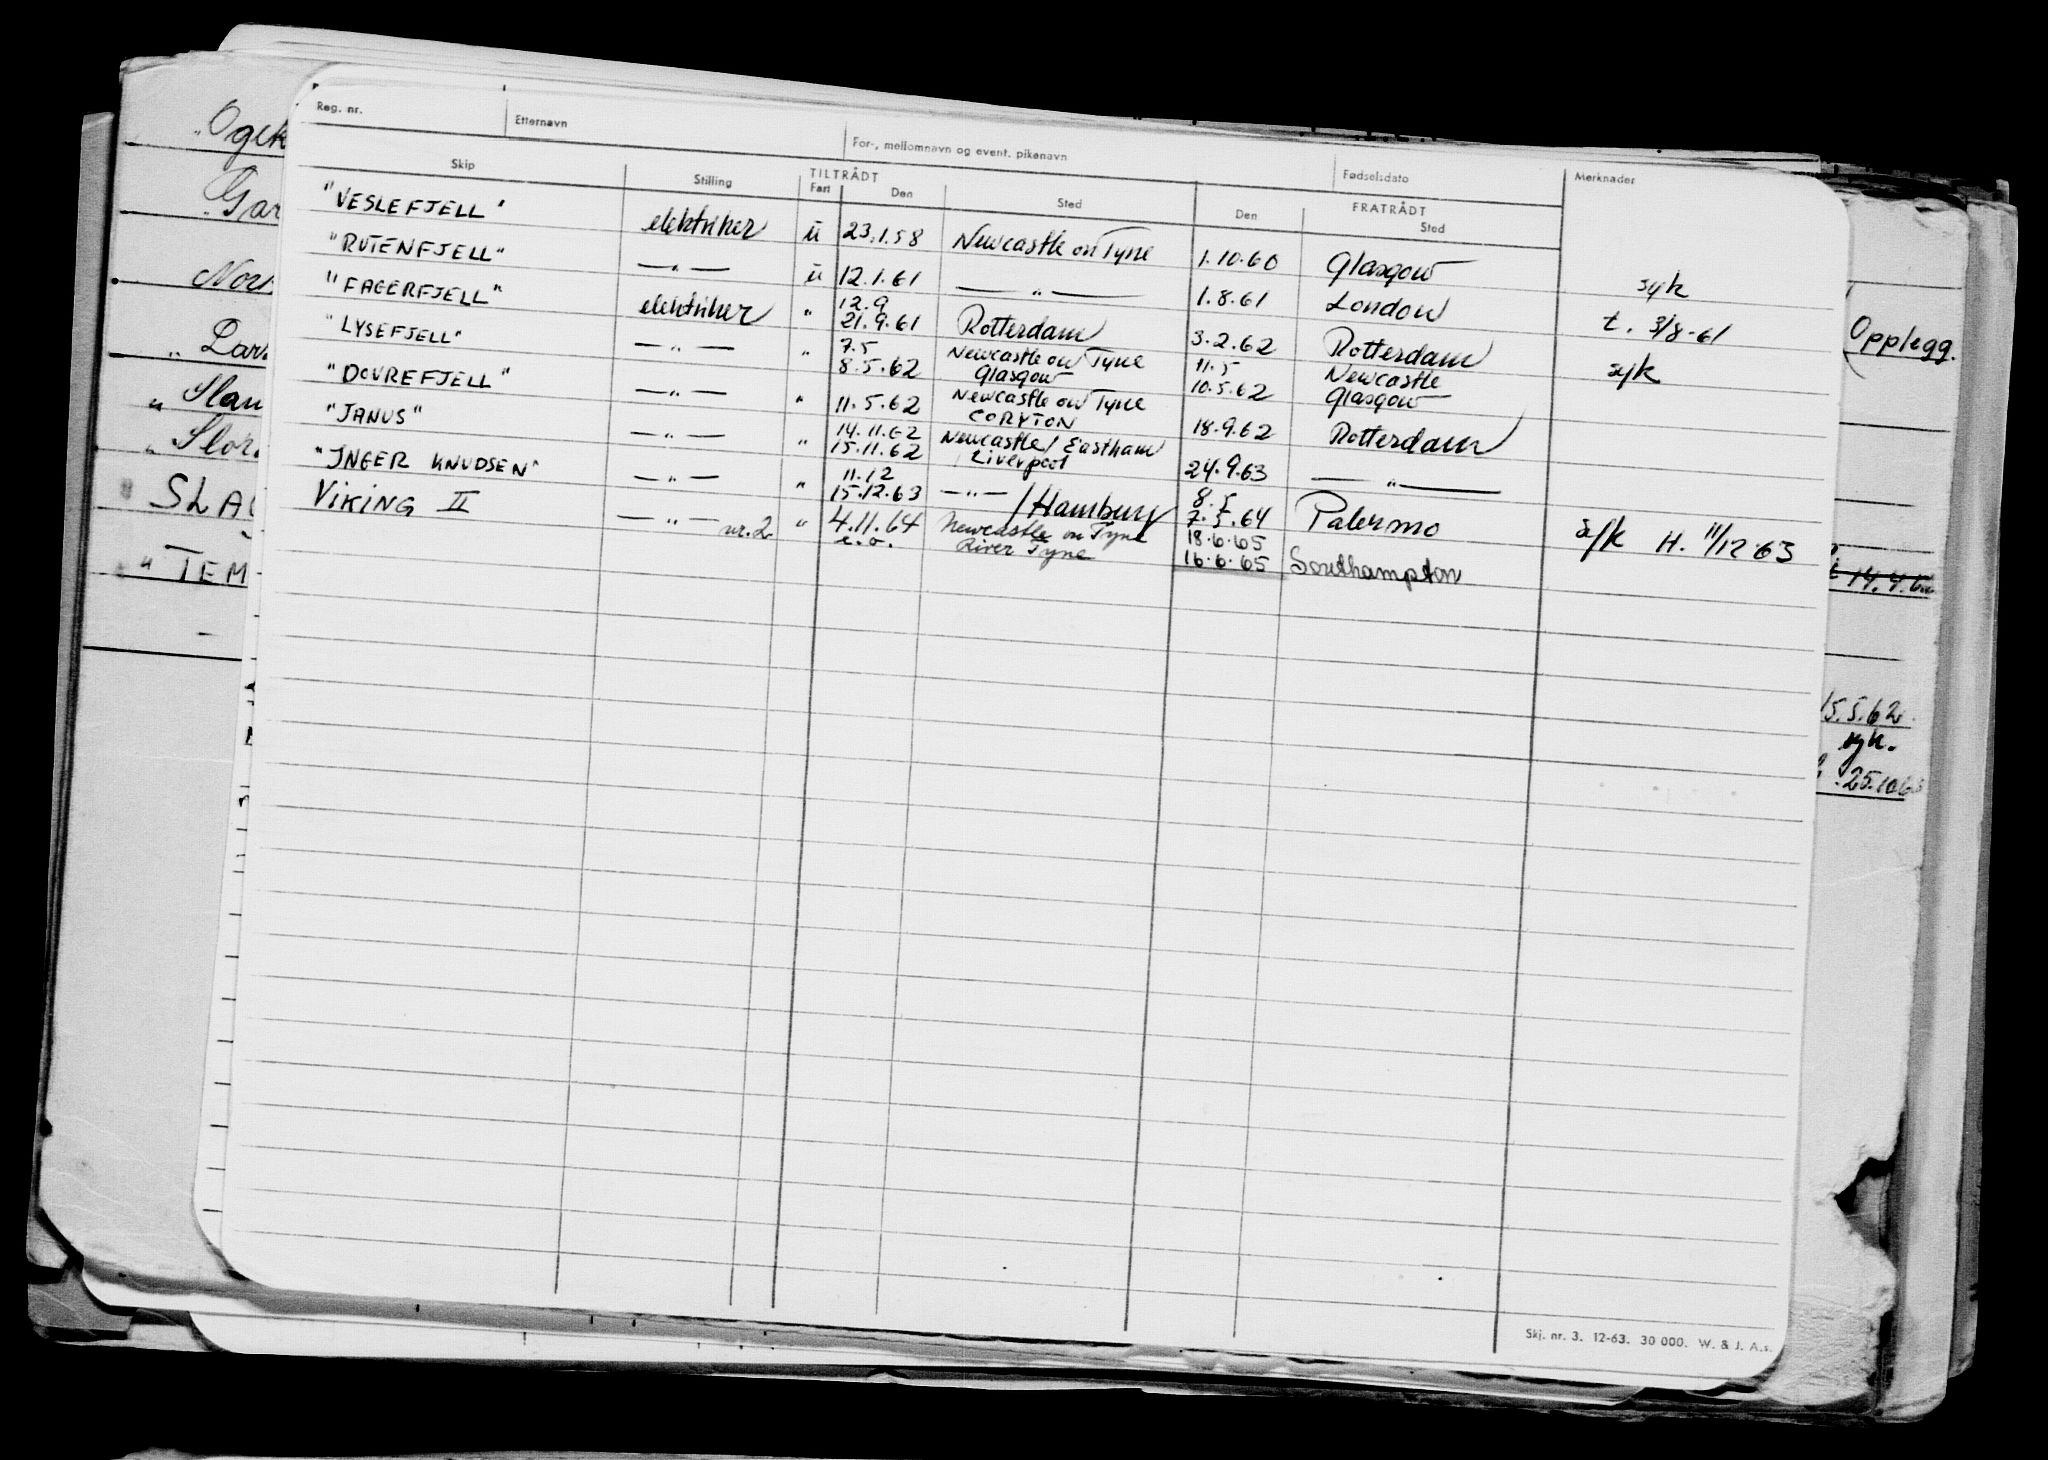 Reg. nr. Etternavn For-, mellomnavn og event. pikenavn Fødselsdato Merknader
Skip Stilling TILTRÅDT FRATRÅDT
Fart Den Sted Den Sted
"VESLEFJELL" elektriker ü 23.1.58 Newcastle on Tyne 1.10.60 Glasgow syk
"RUTENFJELL" —"— ü 12.1.61 —"— 1.8.61 London t. 3/8-61
"FAGERFJELL" elektriker " 12.9 21.9.61 Rotterdam 3.2.62 Rotterdam syk
"LYSEFJELL" —"— " 7.5 8.5.62 Newcastle on Tyne Glasgow 11.5 10.5.62 Newcastle Glasgow
"DOVREFJELL" —"— " 11.5.62 Newcastle on Tyne CORYTON 18.9.62 Rotterdam
"JANUS" —"— " 14.11.62 15.11.62 Newcastle / Eastham Liverpool 24.9.63 —"—
"INGER KNUDSEN" —"— " 11.12 15.12.63 —"— / Hamburg 8.5 7.5.64 Palermo s/k H. 11/12-63
VIKING II —"— nr.2 " 4.11.64 e.o. Newcastle on Tyne River Tyne 18.6.65 16.6.65 Southampton
Skj. nr. 3. 12-63. 30 000. W. & J. A.s.
"Ogek
"Gar
Nor
" Lar
" Slau
" Slor
SLA
" TEM
Opplegg.
14.4.6
15.5.62
syk.
25.10.6